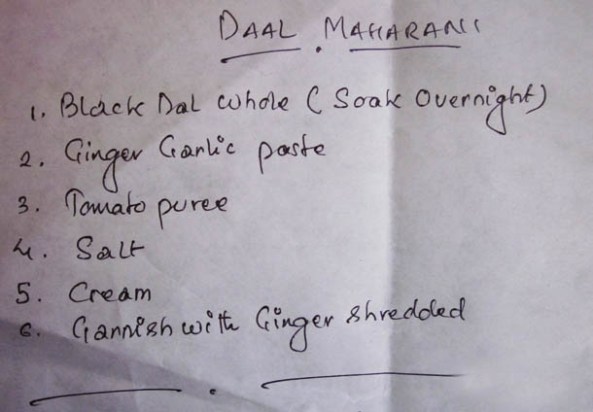 DAAL MAHARANI
1. Black Dal whole ( Soak Overnight)
2. Ginger Garlic paste
3. Tomato puree
4. Salt
5. Cream
6. Garnish with Ginger shredded